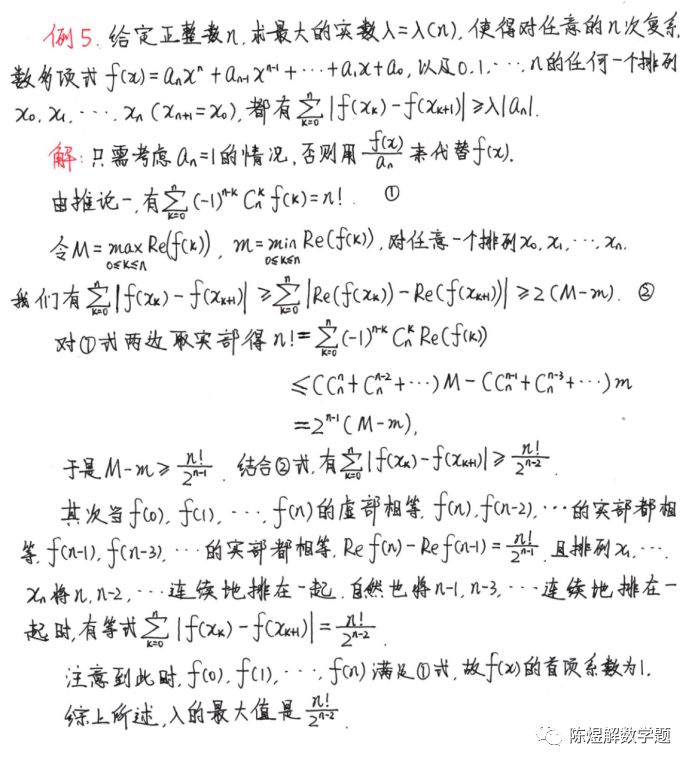 例5. 给定正整数n,求最大的实数λ=λ(n),使得对任意的n次复系
数多项式 f(x)=aₙxⁿ+aₙ₋₁xⁿ⁻¹+···+a₁x+a₀,以及0,1,···,n的任何一个排列
x₀,x₁,···,xₙ(xₙ₊₁=x₀),都有∑_{k=0}^{n}|f(xₖ)-f(xₖ₊₁)|≥λ|aₙ|.
解:只需考虑aₙ=1的情况,否则用f(x)/aₙ来代替f(x).
由推论一,有∑_{k=0}^{n}(-1)^{n-k}C_n^k f(k)=n!. ①
令M=max_{0≤k≤n}Re(f(k)), m=min_{0≤k≤n}Re(f(k)),对任意一个排列x₀,x₁,···,xₙ.
我们有∑_{k=0}^{n}|f(xₖ)-f(xₖ₊₁)|≥∑_{k=0}^{n}|Re(f(xₖ))-Re(f(xₖ₊₁))|≥2(M-m). ②
对①式两边取实部得n!=∑_{k=0}^{n}(-1)^{n-k}C_n^k Re(f(k))
≤(C_n^n+C_n^{n-2}+···)M-(C_n^{n-1}+C_n^{n-3}+···)m
=2^{n-1}(M-m),
于是M-m≥n!/2^{n-1}. 结合②式,有∑_{k=0}^{n}|f(xₖ)-f(xₖ₊₁)|≥n!/2^{n-2}.
其次当f(0),f(1),···,f(n)的虚部相等,f(n),f(n-2),···的实部都相
等,f(n-1),f(n-3),···的实部都相等,Re f(n)-Re f(n-1)=n!/2^{n-1},且排列x₁,···,
xₙ将n,n-2,···连续地排在一起,自然也将n-1,n-3,···连续地排在一
起时,有等式∑_{k=0}^{n}|f(xₖ)-f(xₖ₊₁)|=n!/2^{n-2}.
注意到此时,f(0),f(1),···,f(n)满足①式,故f(x)的首项系数为1.
综上所述,λ的最大值是n!/2^{n-2}.
陈煜解数学题